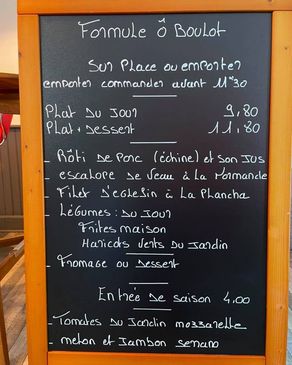 Formule Ô Boulot
Sur Place ou emporter
emporter commander avant 11h30
Plat Du Jour 9,80
Plat + Dessert 11,80
- Rôti de Porc (échine) et son Jus
- escalope de Veau à La Normande
- Filet D'eglefin à La Plancha
- Légumes : Du Jour
Frites maison
Haricots Verts Du Jardin
- Fromage ou Dessert
Entrée De saison 4,00
- Tomates Du Jardin mozzarelle
- melon et Jambon serrano